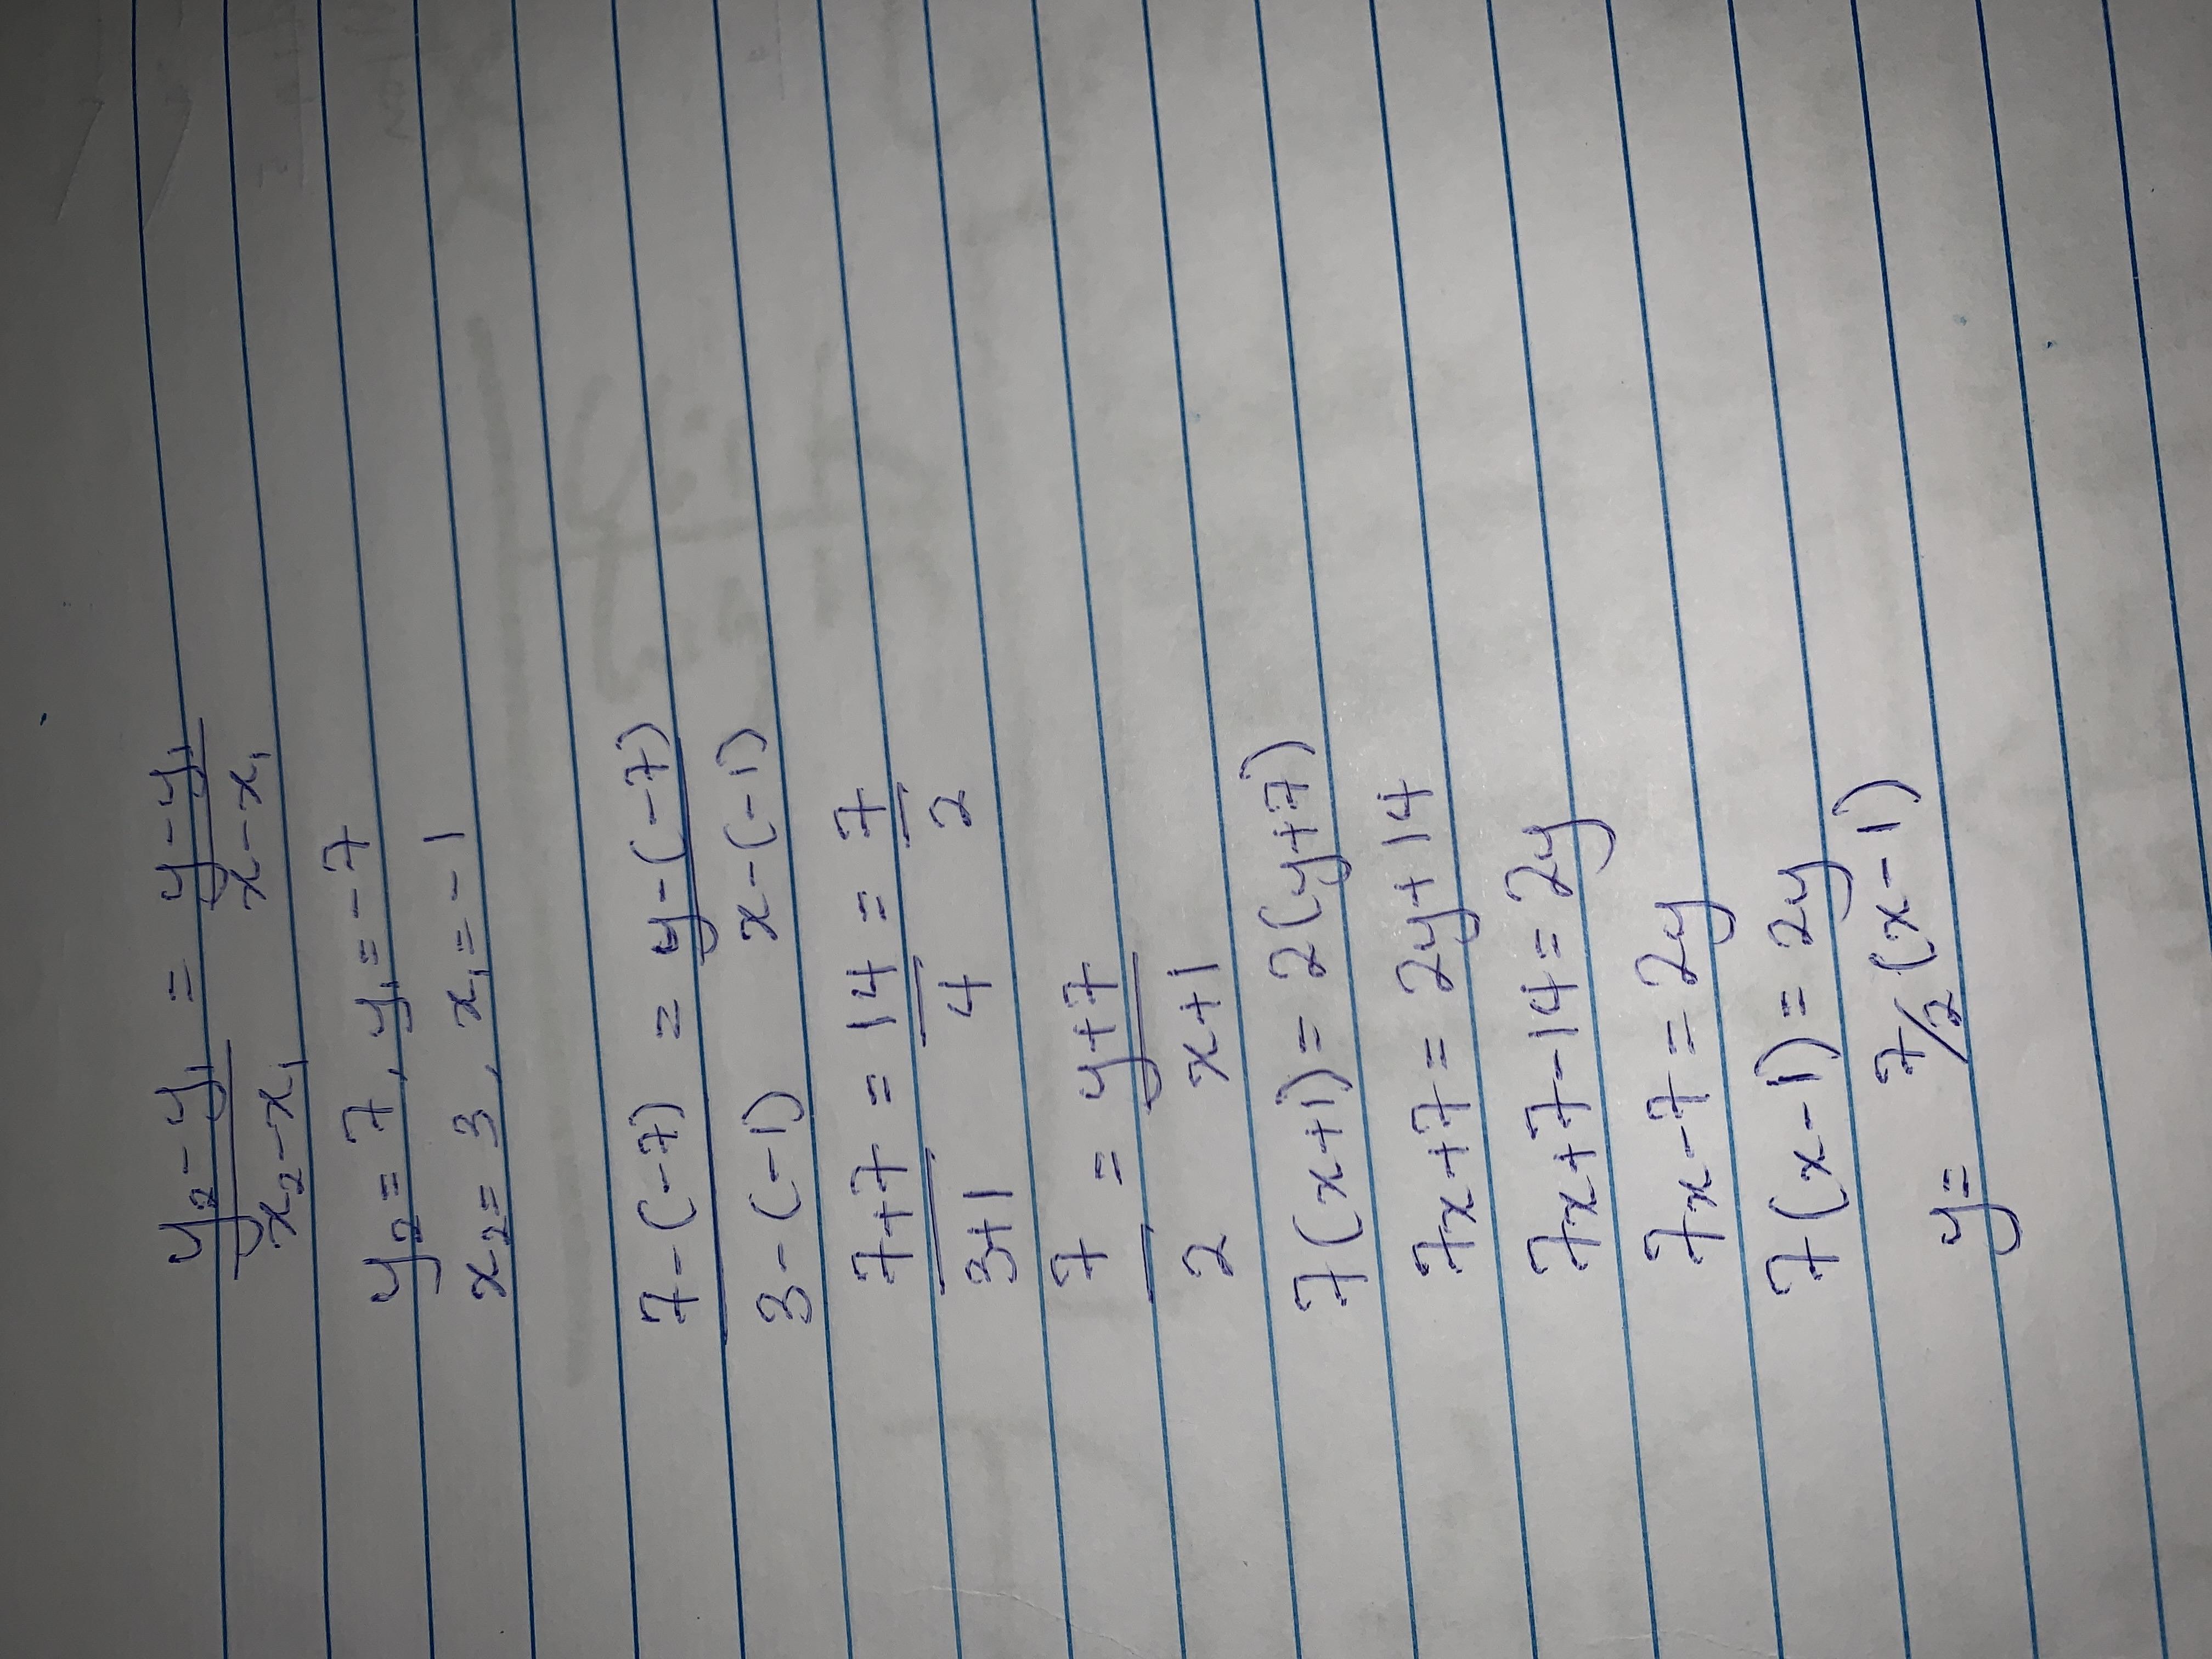 y₂-y₁/x₂-x₁ = y-y₁/x-x₁
y₂= 7, y₁= -7
x₂= 3, x₁= -1
7-(-7)/3-(-1) = y-(-7)/x-(-1)
7+7/3+1 = 14/4 = 7/2
7/2 = y+7/x+1
7(x+1)= 2(y+7)
7x+7= 2y+14
7x+7-14= 2y
7x-7= 2y
7(x-1)= 2y
y= 7/2(x-1)